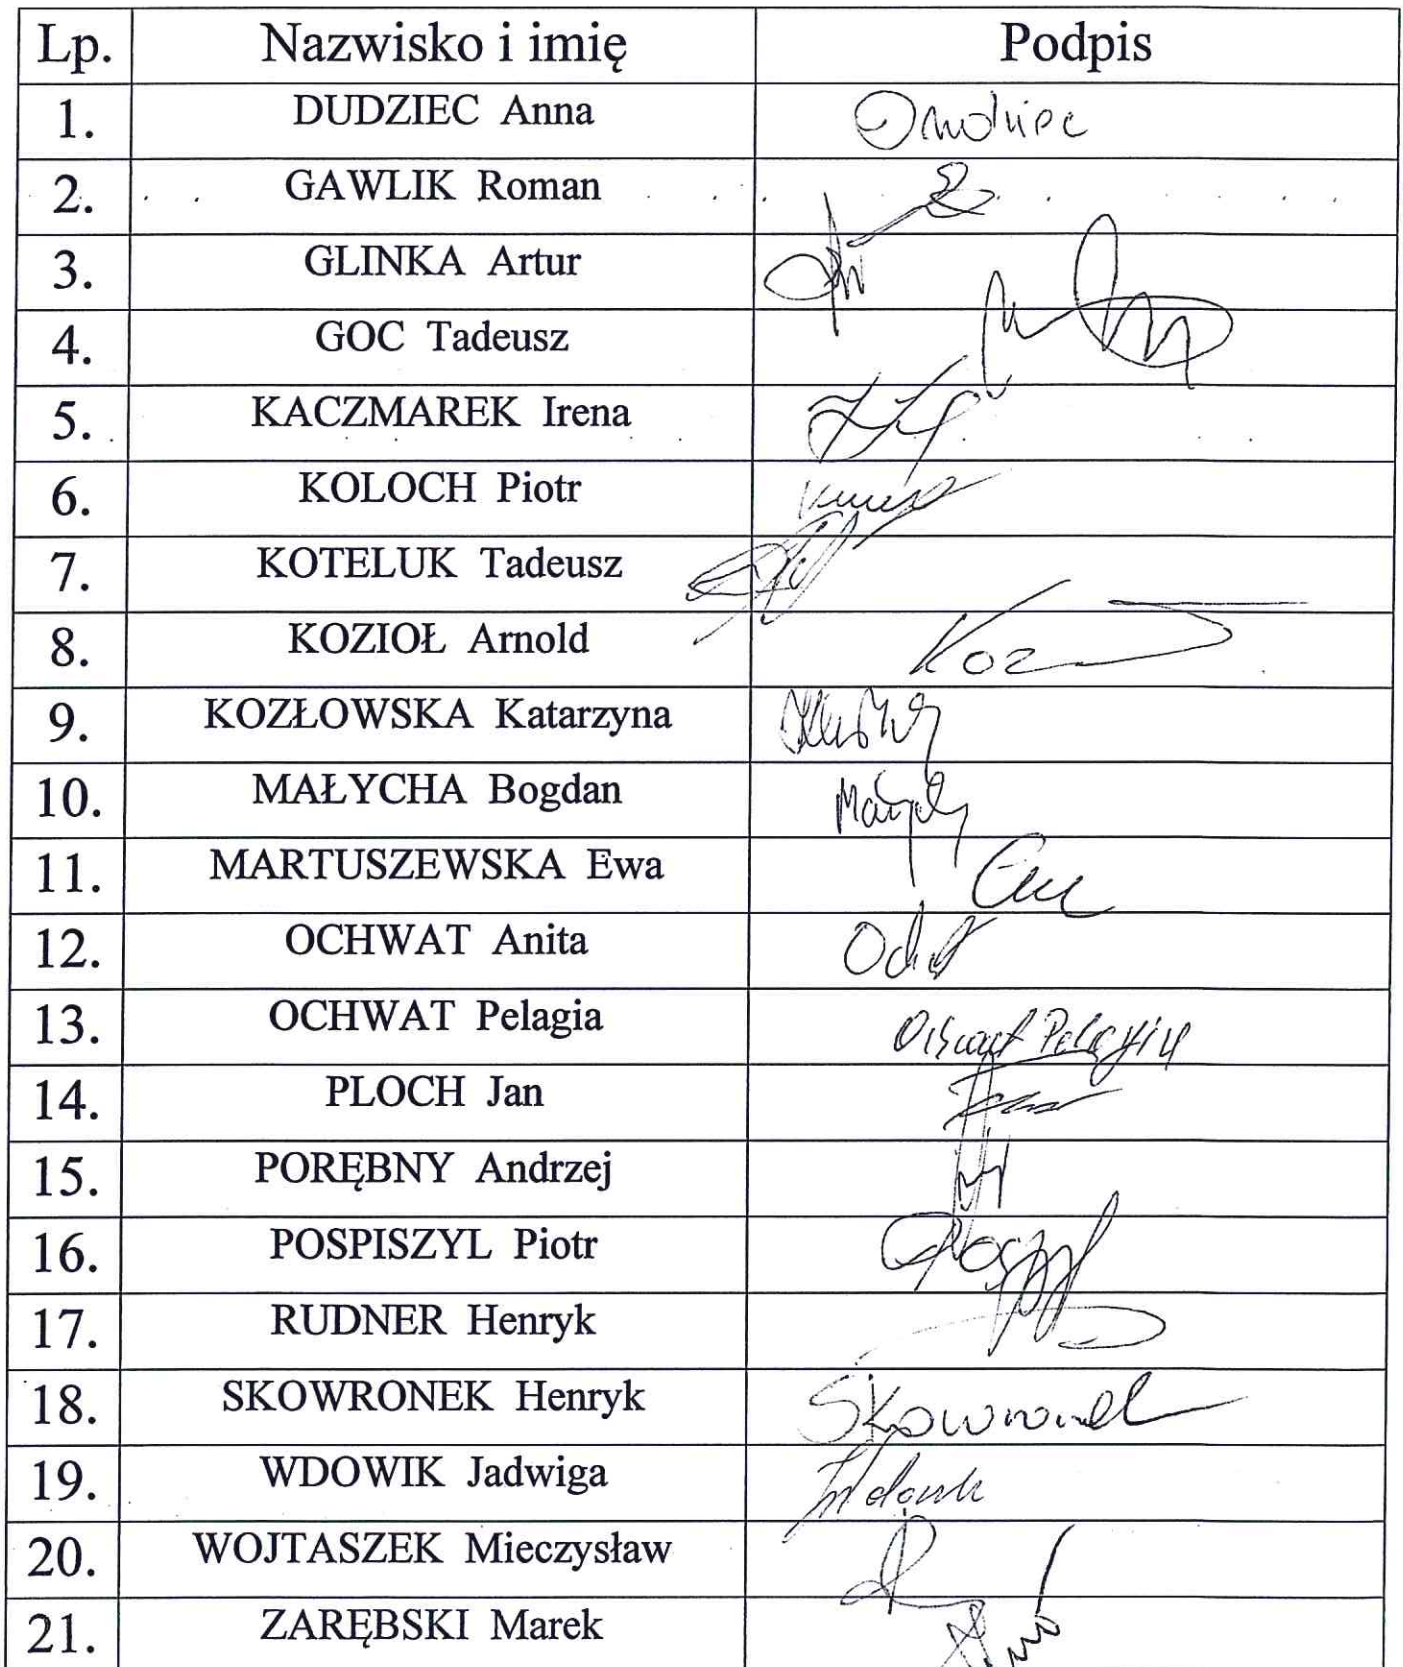 Lp. Nazwisko i imię Podpis
1. DUDZIEC Anna
2. GAWLIK Roman
3. GLINKA Artur
4. GOC Tadeusz
5. KACZMAREK Irena
6. KOLOCH Piotr
7. KOTELUK Tadeusz
8. KOZIOŁ Arnold
9. KOZŁOWSKA Katarzyna
10. MAŁYCHA Bogdan
11. MARTUSZEWSKA Ewa
12. OCHWAT Anita
13. OCHWAT Pelagia Ochwat Pelagia
14. PLOCH Jan
15. PORĘBNY Andrzej
16. POSPISZYL Piotr
17. RUDNER Henryk
18. SKOWRONEK Henryk Skowronek
19. WDOWIK Jadwiga
20. WOJTASZEK Mieczysław
21. ZARĘBSKI Marek